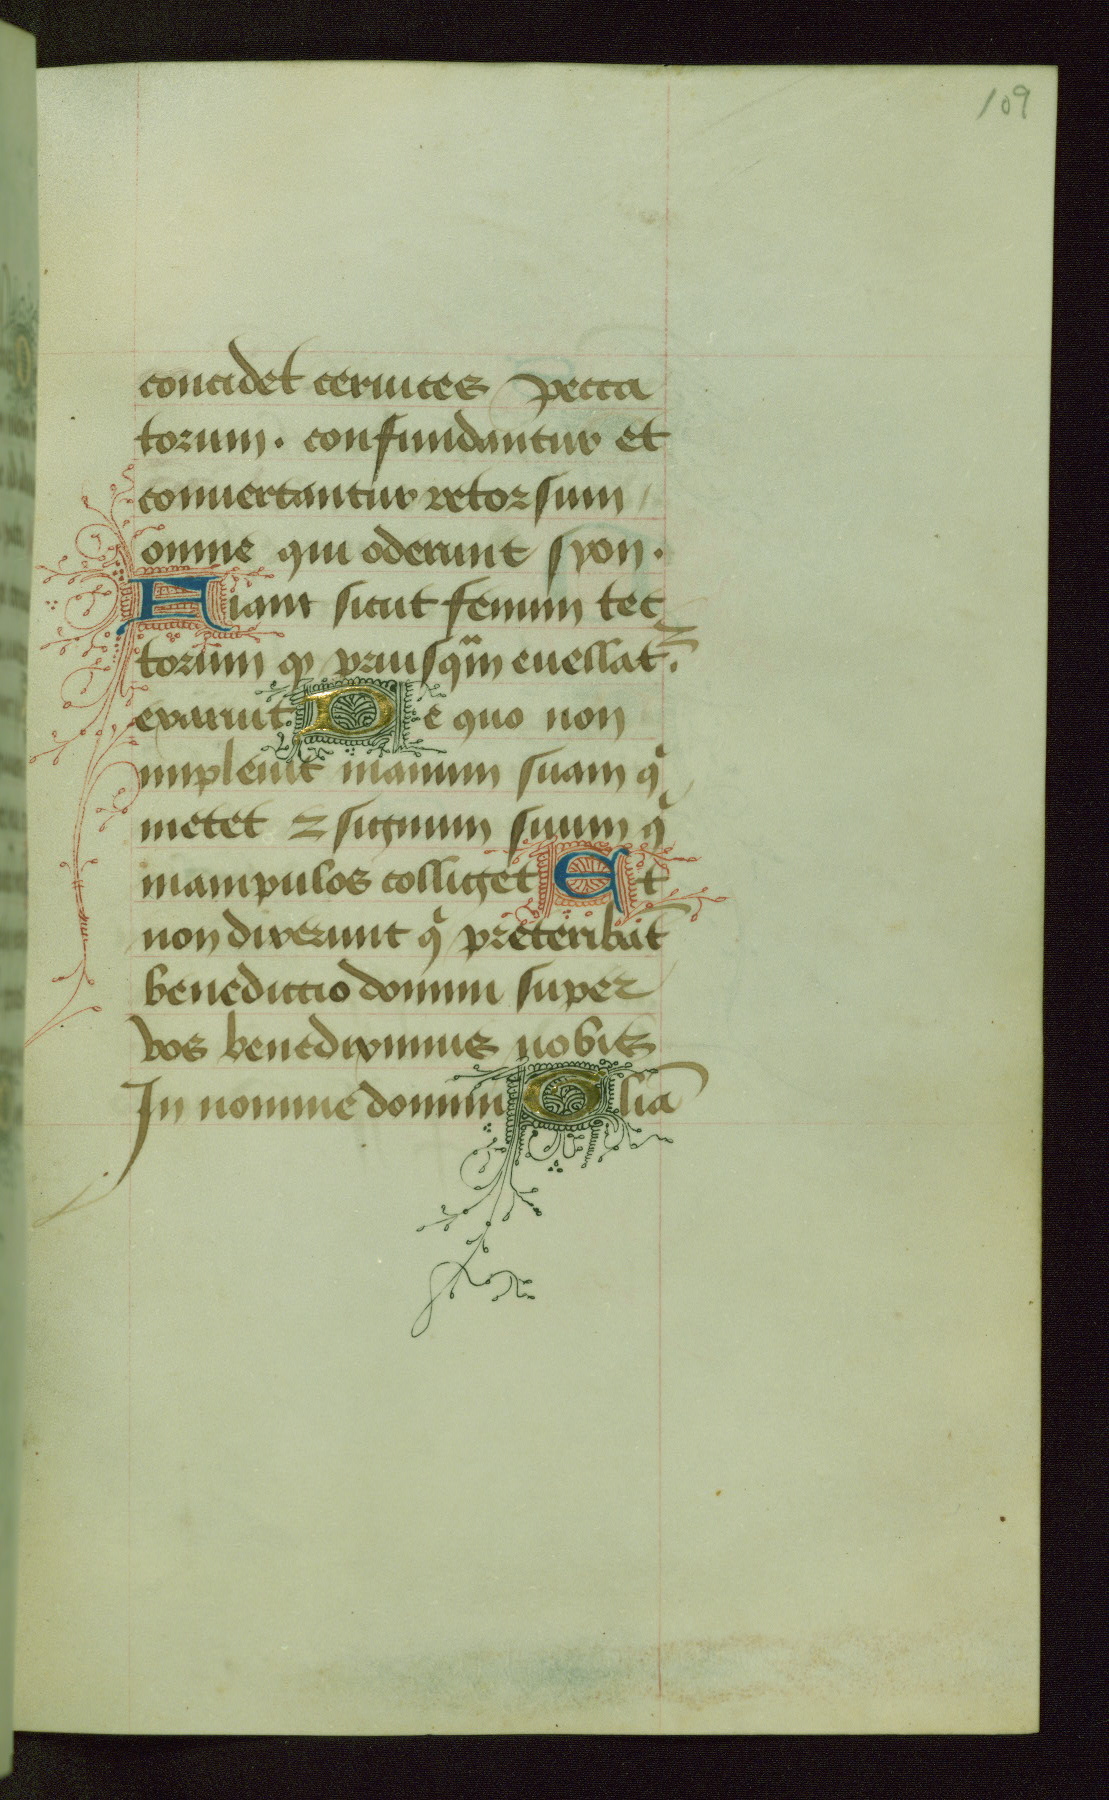 109
concidet ceruices pecca
torum. confundantur et
conuertantur retorsum
omne qui oderunt syon.
Fiant sicut fenum tec
torum qꝫ priusqᷓm euellat᷑.
exaruit De quo non
impleuit manum suam qⁱ
metet ⁊ signum suum qⁱ
manipulos colliget Et
non dixerunt qⁱ preteribāt
benedictio domini super
vos benediximus nobis
In nomine domini Gliā